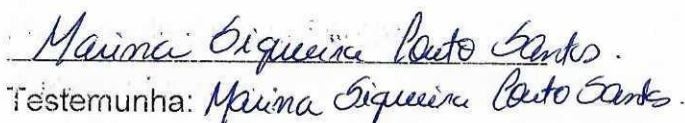 Marina Siqueira Couto Santos.
Testemunha: Marina Siqueira Couto Santos.